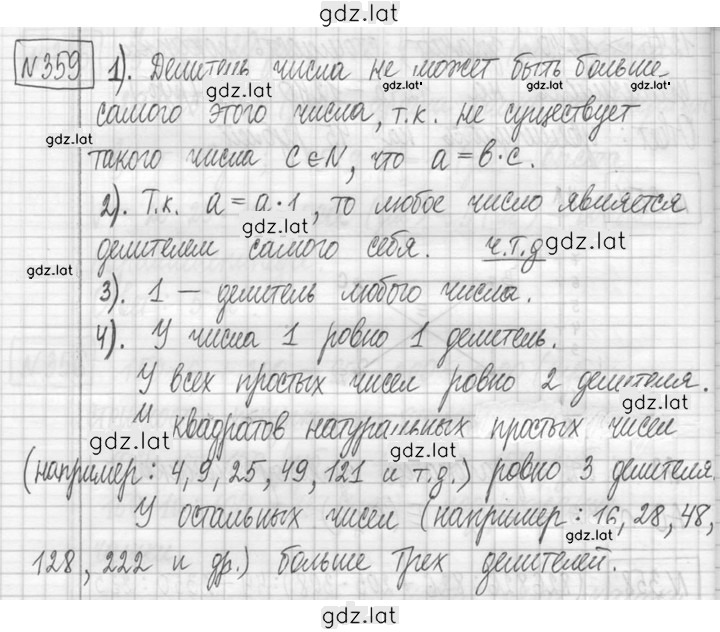 gdz.lat
№359 1). Делитель числа не может быть больше
gdz.lat gdz.lat gdz.lat gdz.lat
самого этого числа, т.к. не существует
gdz.lat
такого числа c∈N, что a=b·c.
2). Т.к. a=a·1, то любое число является
gdz.lat
делителем самого себя. ч.т.д gdz.lat
gdz.lat
3). 1 — делитель любого числа.
4). У числа 1 ровно 1 делитель.
У всех простых чисел ровно 2 делителя.
gdz.lat
И квадратов натуральных простых чисел
gdz.lat gdz.lat
(например: 4, 9, 25, 49, 121 и т.д.) ровно 3 делителя.
У остальных чисел (например: 16, 28, 48,
gdz.lat
128, 222 и др.) больше трех делителей.
gdz.lat